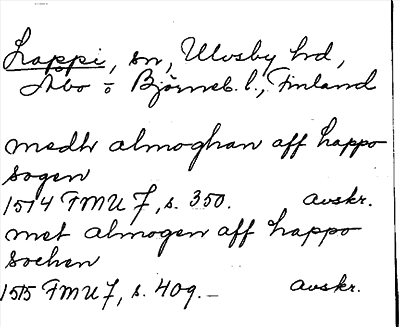 Lappi, sn, Ulvsby hd,
Åbo o Björneb. l., Finland
medh almoghan aff lappo
sogen
1514 FMU 7, s. 350. avskr.
met almogen aff lappo
sochen
1515 FMU 7, s. 409. – avskr.